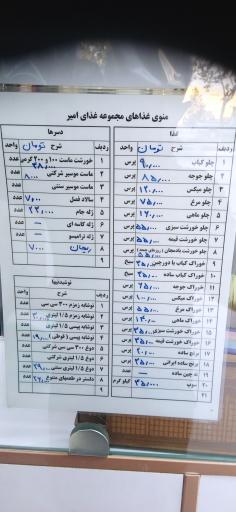 منوی غذاهای مجموعه غذای امیر
غذا
ردیف شرح تومان واحد
۱ چلو کباب ۹۰,۰۰۰ پرس
۲ چلو جوجه ۸۵,۰۰۰ پرس
۳ چلو میکس ۱۲۰,۰۰۰ پرس
۴ چلو مرغ ۷۵,۰۰۰ پرس
۵ چلو ماهی ۱۲۰,۰۰۰ پرس
۶ چلو خورشت سبزی ۵۵,۰۰۰ پرس
۷ چلو خورشت قیمه ۵۵,۰۰۰ پرس
۸ چلو خورشت بادمجان ۵۵,۰۰۰
۹ خوراک کباب با دورچین ۳۵,۰۰۰ سیخ
۱۰ خوراک کباب ساده سیخ
۱۱ خوراک جوجه ۶۵,۰۰۰ پرس
۱۲ خوراک میکس ۱۰۰,۰۰۰ پرس
۱۳ خوراک مرغ ۵۵,۰۰۰ پرس
۱۴ خوراک ماهی پرس
۱۵ خوراک خورشت سبزی ۳۵,۰۰۰ پرس
۱۶ خوراک خورشت قیمه ۳۵,۰۰۰ پرس
۱۷ برنج ساده ۲۰,۰۰۰ پرس
۱۸ برنج ساده ایرانی ۳۵,۰۰۰ پرس
۱۹ ته چین ساده — عدد
۲۰ سوپ ۳۵,۰۰۰ کیلو گرم
۲۱
دسرها
ردیف شرح تومان واحد
۱ خورشت ماست ۱۰۰ و ۲۰۰ گرمی ۳۸,۰۰۰ عدد
۲ ماست موسیر شرکتی ۸,۰۰۰ عدد
۳ ماست موسیر سنتی — عدد
۴ سالاد فصل ۷,۰۰۰ عدد
۵ ژله جام ۲۲,۰۰۰ عدد
۶ ژله کاسه ای — عدد
۷ ژله ترامیسو — عدد
۸ ریحان ۷,۰۰۰
۹
نوشیدنیها
ردیف شرح واحد
۱ نوشابه زمزم ۳۰۰ سی سی عدد
۲ نوشابه زمزم ۱/۵ لیتری عدد
۳ نوشابه پپسی ۱/۵ لیتری عدد
۴ نوشابه پپسی ( قوطی ) ۱۹,۰۰۰ عدد
۵ دوغ ۳۰۰ سی سی شرکتی عدد
۶ دوغ ۱/۵ لیتری شرکتی عدد
۷ دوغ ۱/۵ لیتری سنتی ۲۹,۰۰۰ عدد
۸ دلستر در طعمهای متنوع ۲۲,۰۰۰ عدد